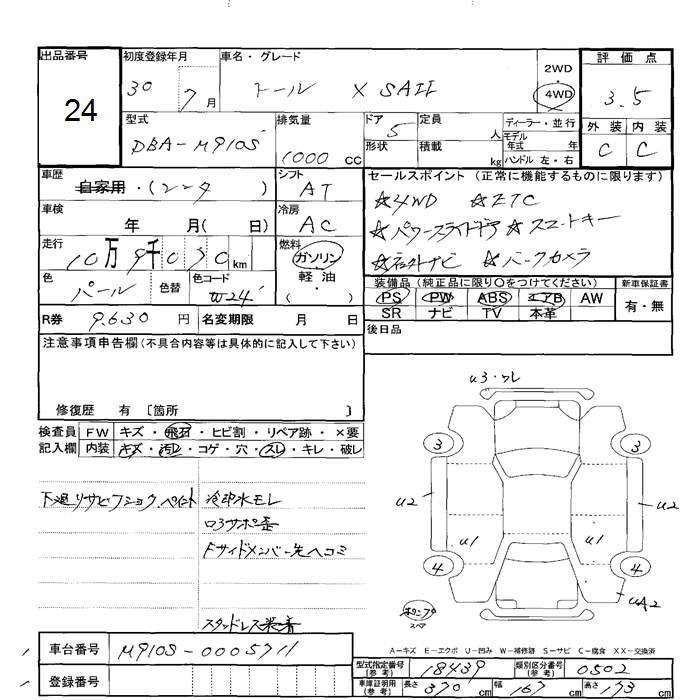 出品番号
24
初度登録年月
30 7月
車名・グレード
トール X SAII
2WD
4WD
評価点
3.5
外装 内装
C C
型式
DBA-M910S
排気量
1000 cc
ドア 5
形状
定員 人
積載 kg
ディーラー・並行
モデル年式 年
ハンドル 左・右
車歴
自家用・(リース)
シフト
AT
車検
年 月( 日)
冷房
AC
走行
10万9千030km
燃料
ガソリン・軽油
( )
色
パール
色替
色コード
W24
R券 9,630円
名変期限 月 日
セールスポイント(正常に機能するものに限ります)
☆4WD ☆ETC
☆パワースライドドア ☆スマートキー
☆社外ナビ ☆バックカメラ
装備品(純正品に限り○をつけてください)
PS PW ABS エアB AW
SR ナビ TV 本革
新車保証書
有・無
後日品
注意事項申告欄(不具合内容等は具体的に記入して下さい)
修復歴 有〔箇所 〕
検査員記入欄
FW キズ・飛石・ヒビ割・リペア跡・×要
内装 キズ・汚レ・コゲ・穴・スレ・キレ・破レ
下廻リサビ
ショック、ペイント
冷却水モレ
ロアサポ歪
Fサイドメンバー先ヘコミ
スタッドレス装着
U3・ワレ
3 3
U2 U2
U1 U1
4 4
UA2
スペア
A-キズ E-エクボ U-凹み W-補修跡 S-サビ C-腐食 XX-交換済
車台番号 M910S-0005711
登録番号
型式指定番号(参考) 18439
類別区分番号(参考) 0502
車庫証明用(参考) 長さ 370cm 幅 167cm 高さ 173cm